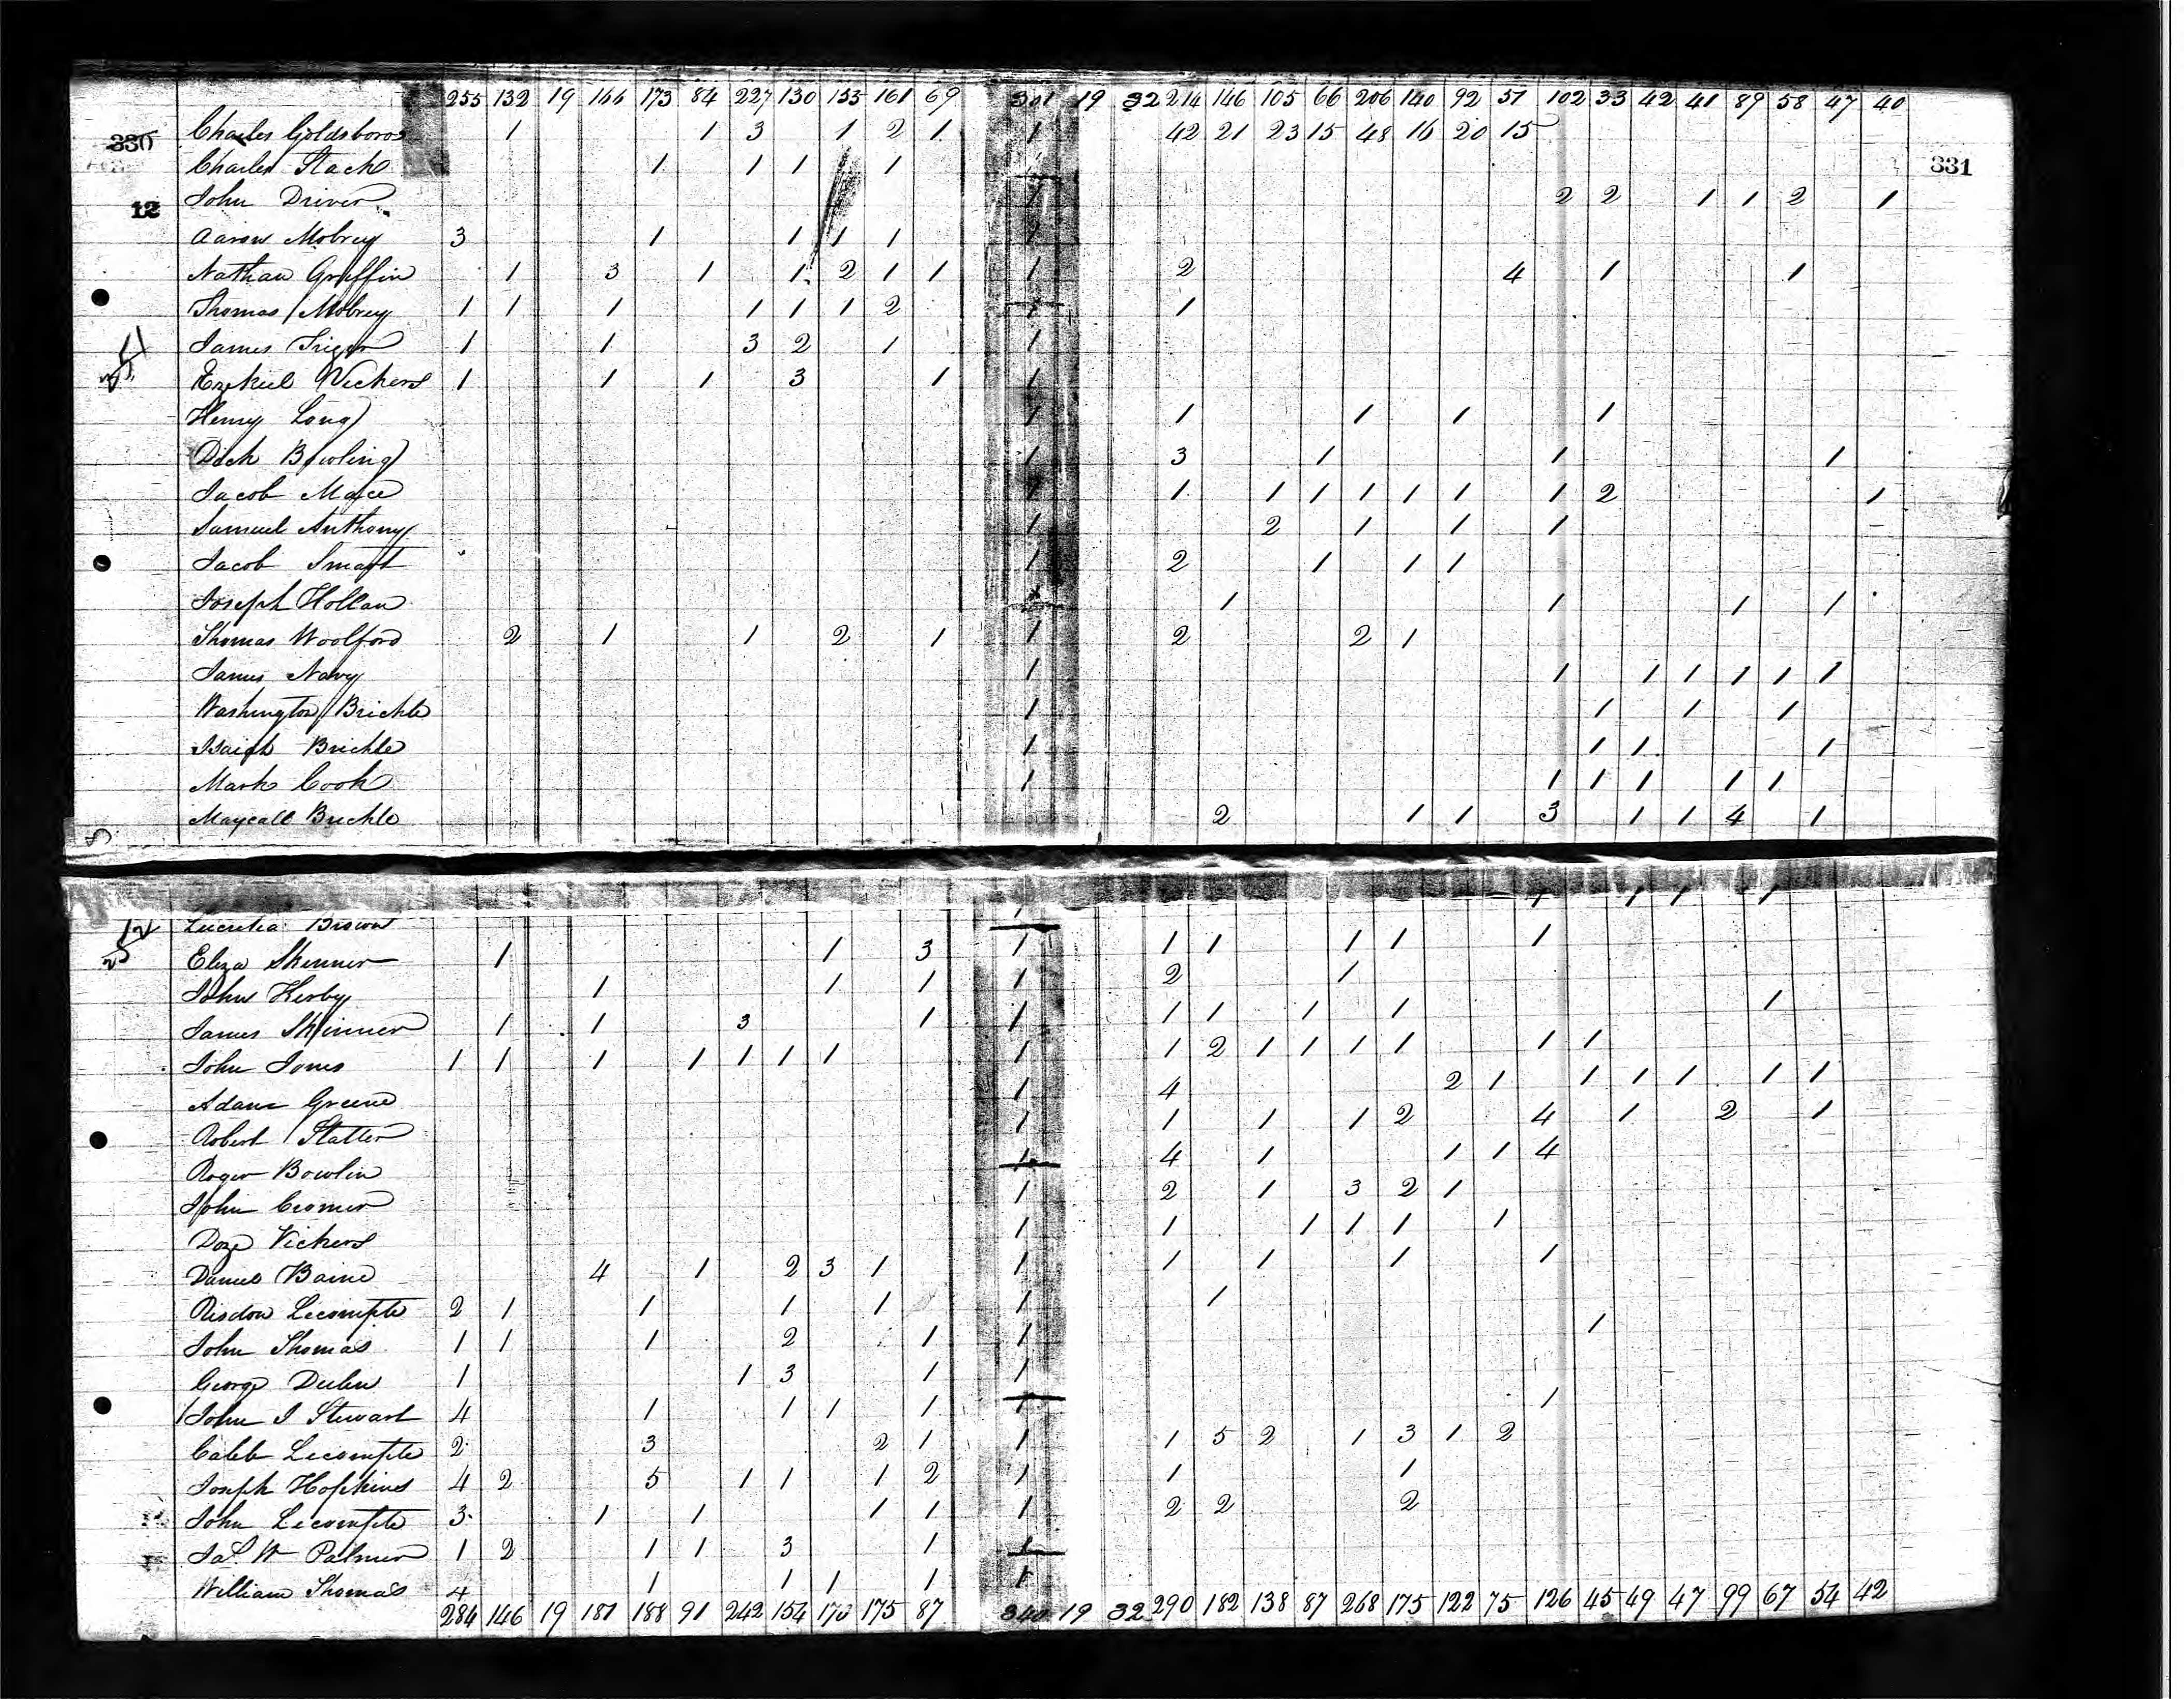 255 132 19 166 173 84 227 130 153 161 69 301 19 32 214 146 105 66 206 140 92 51 102 33 42 41 89 58 47 40
330 Charles Goldsboro 1 1 3 1 2 1 1 42 21 23 15 48 16 20 15
Charles Stack 1 1 1 1 331
12 John Driver 1 2 2 1 1 2 1
Aaron Mobrey 3 1 1 1 1 1
Nathan Griffin 1 3 1 1 2 1 1 1 2 4 1 1
Thomas Mobrey 1 1 1 1 1 1 2 1 1
James Triger 1 1 3 2 1 1
Ezekiel Vickers 1 1 1 3 1 1
Henry Long 1 1 1 1 1
Dick Bowling 1 3 1 1 1
Jacob Mace 1 1 1 1 1 1 1 1 2 1
Samuel Anthony 1 2 1 1 1
Jacob Smart 1 2 1 1 1
Joseph Hollan 1 1 1 1
Thomas Woolford 2 1 1 2 1 1 2 2 1
James Navy 1 1 1 1 1 1 1
Washington Brickle 1 1 1 1
Isaiah Brickle 1 1 1 1
Mark Cook 1 1 1 1 1 1
Maycall Brickle 2 1 1 3 1 1 4 1
Lucretia Brown 1 1 1 1 1 1
Eliza Skinner 1 1 3 1 1 1 1 1 1
John Kerby 1 1 1 1 2 1
James Skinner 1 1 3 1 1 1 1 1 1 1
John Jones 1 1 1 1 1 1 1 1 1 2 1 1 1 1 1 1
Adam Greene 1 4 2 1 1 1 1 1 1
Robert Statter 1 1 1 1 2 4 1 2 1
Roger Bowlin 1 4 1 1 1 4
John Cromer 1 2 1 3 2 1
Doze Vickers 1 1 1 1 1 1
Daniel Baine 4 1 2 3 1 1 1 1 1 1
Risdon Lecompte 2 1 1 1 1 1 1
John Thomas 1 1 1 2 1 1 1
George Dulin 1 1 3 1 1
John I Stewart 4 1 1 1 1 1 1
Caleb Lecompte 2 3 2 1 1 1 5 2 1 3 1 2
Joseph Hopkins 4 2 5 1 1 1 2 1 1 1
John Lecompte 3 1 1 1 1 1 2 2 2
Jas. W Palmer 1 2 1 1 3 1 1
William Thomas 4 1 1 1 1 1
284 146 19 181 188 91 242 154 170 175 87 340 19 32 290 182 138 87 268 175 122 75 126 45 49 47 99 67 54 42